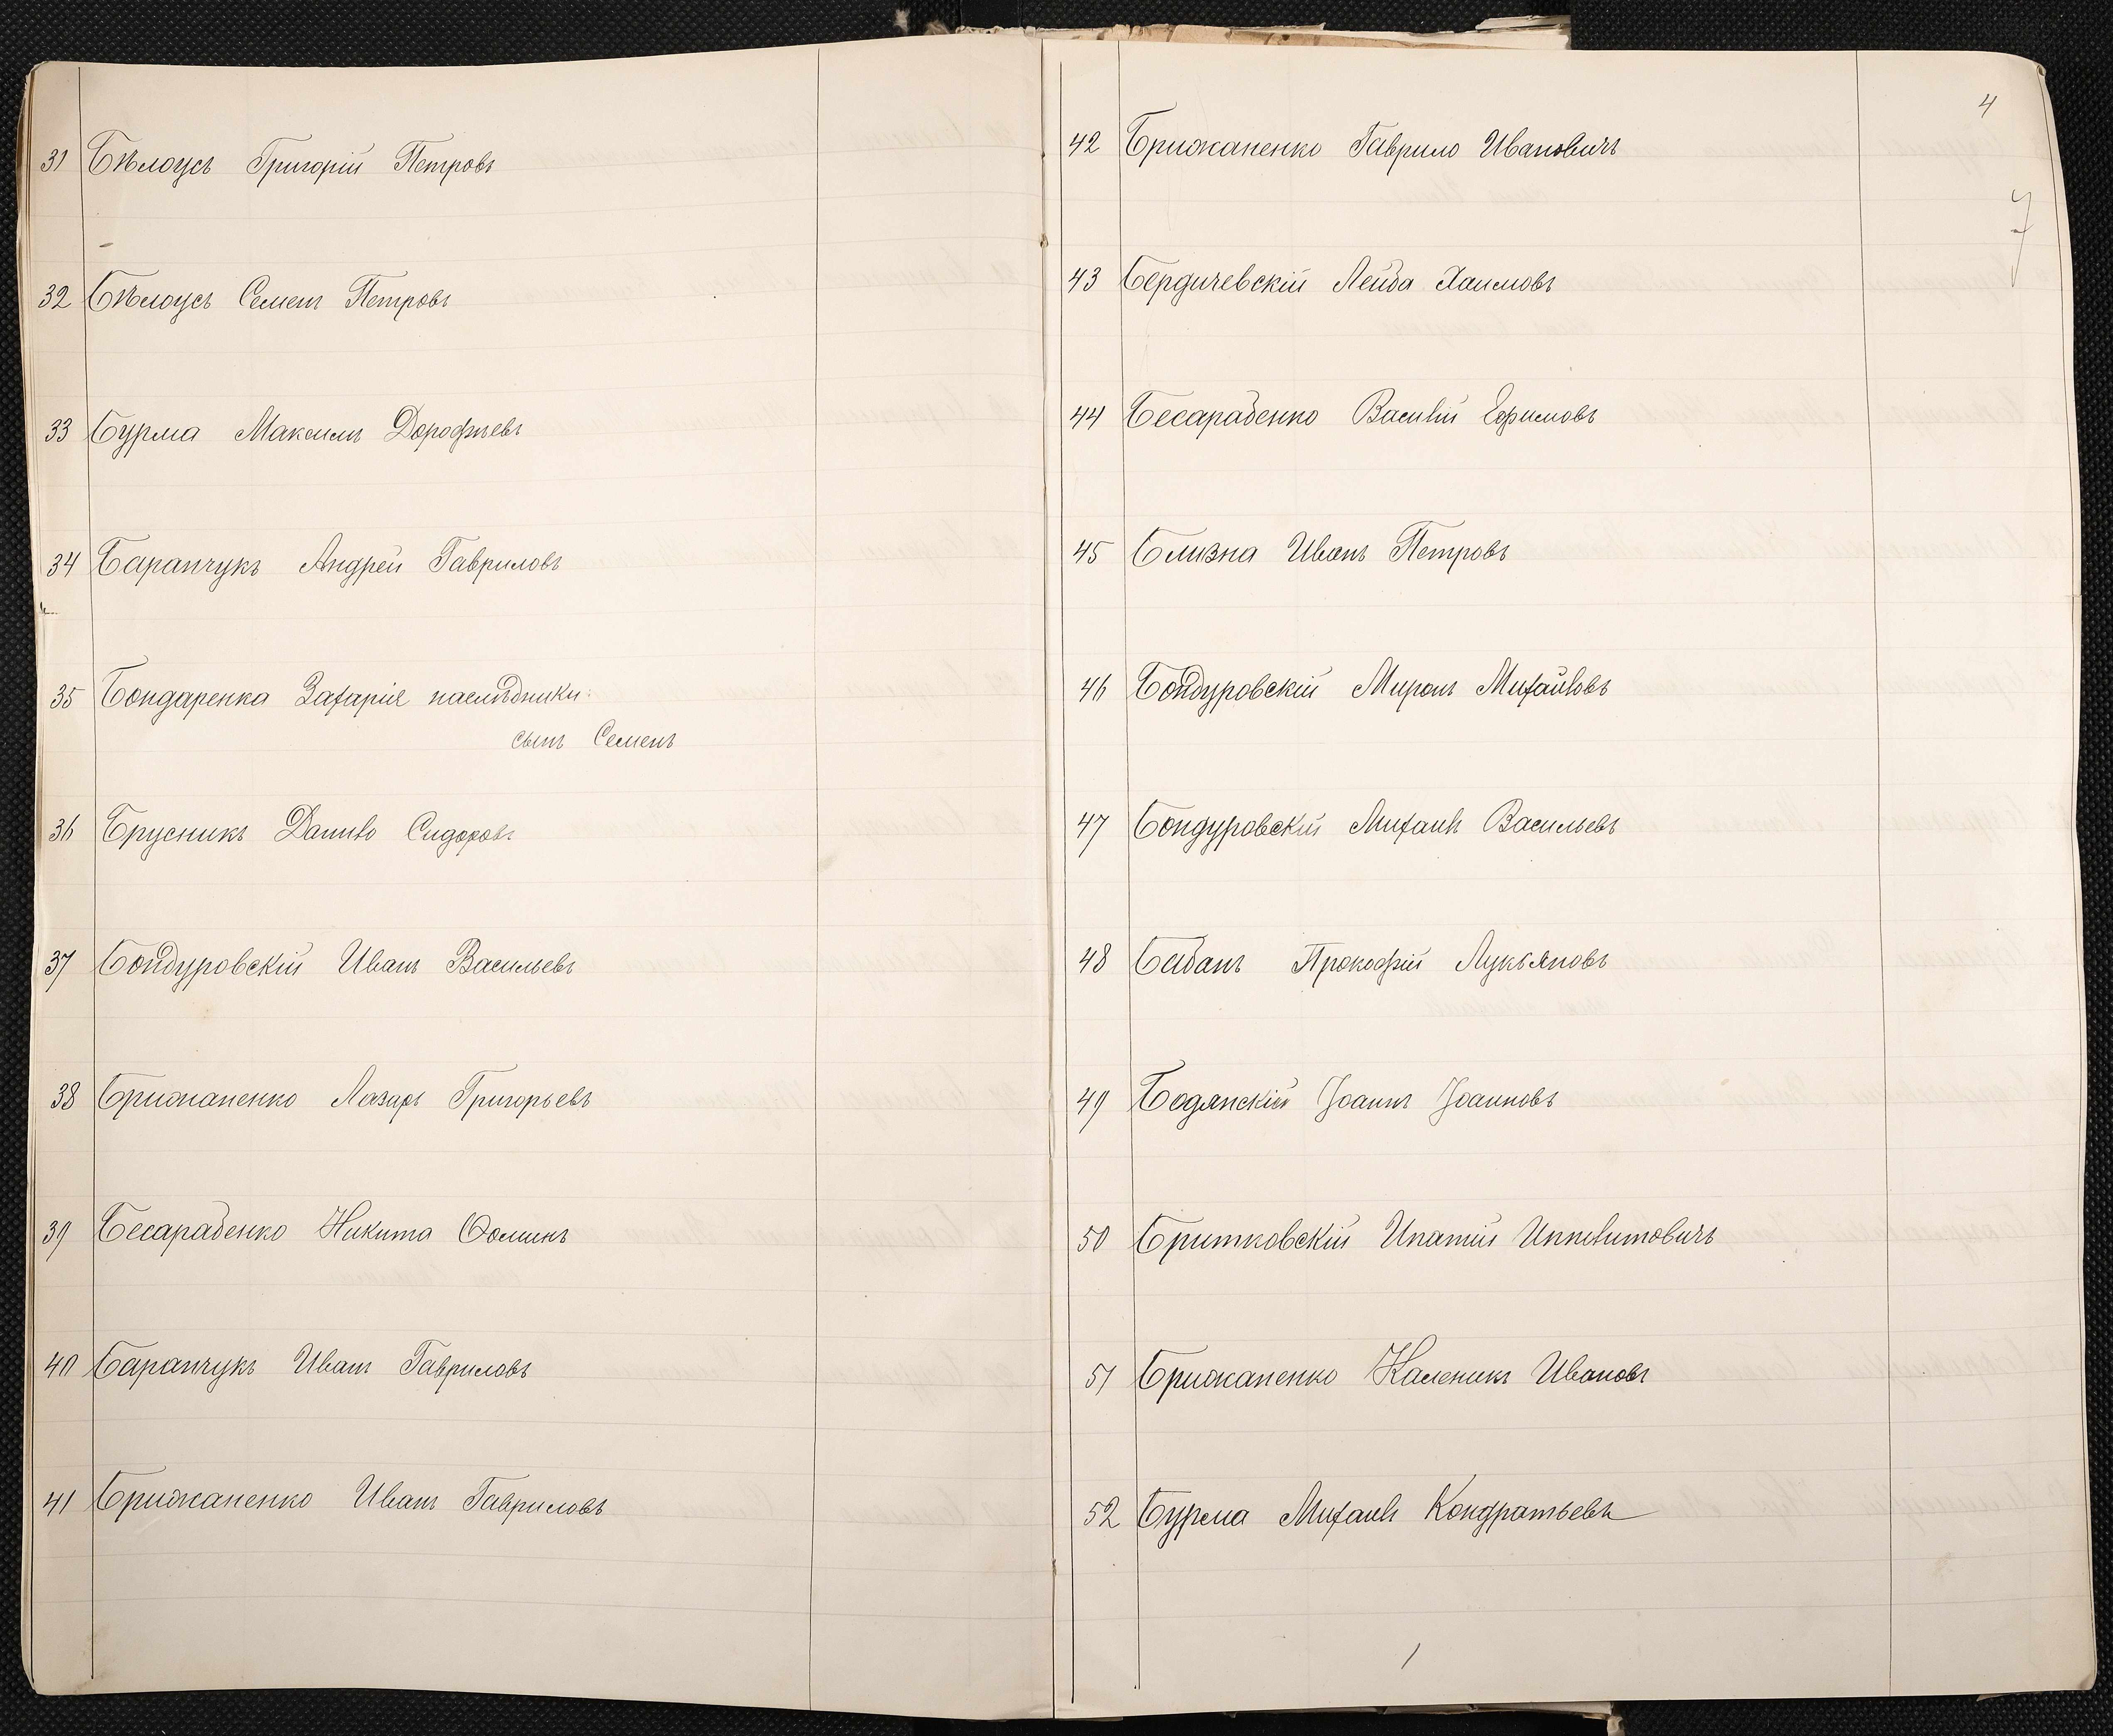 31 Бѣлоусъ Григорій Петровъ
32 Бѣлоусъ Семенъ Петровъ
33 Бурма Максимъ Дорофѣевъ
34 Баранчукъ Андрей Гавриловъ
35 Бондаренка Захарія наслѣдники:
сынъ Семенъ
36 Брусникъ Данило Сидоровъ
37 Бондуровскій Иванъ Васильевъ
38 Брижаненко Лазарь Григорьевъ
39 Бесарабенко Никита Ѳоминъ
40 Баранчукъ Иванъ Гавриловъ
41 Брижаненко Иванъ Гавриловъ
4
7
42 Брижаненко Гаврило Ивановичъ
43 Бердичевскій Лейба Хаимовъ
44 Бесарабенко Василій Ефимовъ
45 Близна Иванъ Петровъ
46 Бондуровскій Миронъ Михайловъ
47 Бондуровскій Михаилъ Васильевъ
48 Бабанъ Прокофій Лукьяновъ
49 Бодянскій Іоаннъ Іоанновъ
50 Бритковскій Ипатій Ипполитовичъ
51 Брижаненко Каленикъ Ивановъ
52 Бурма Михаилъ Кондратьевъ